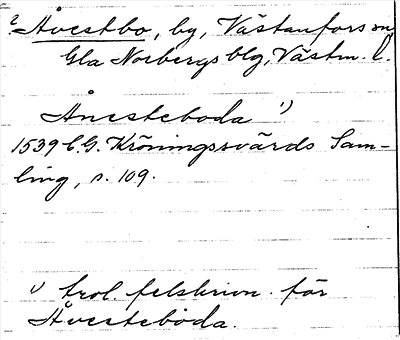 ? Åvestbo, by, Västanfors sn,
Gla Norbergs blg, Västm. l.
Ånesteboda ¹)
1539 C.G. Kröningssvärds Sam-
ling, s. 109.
¹) trol. felskrivn. för
Åvesteboda.